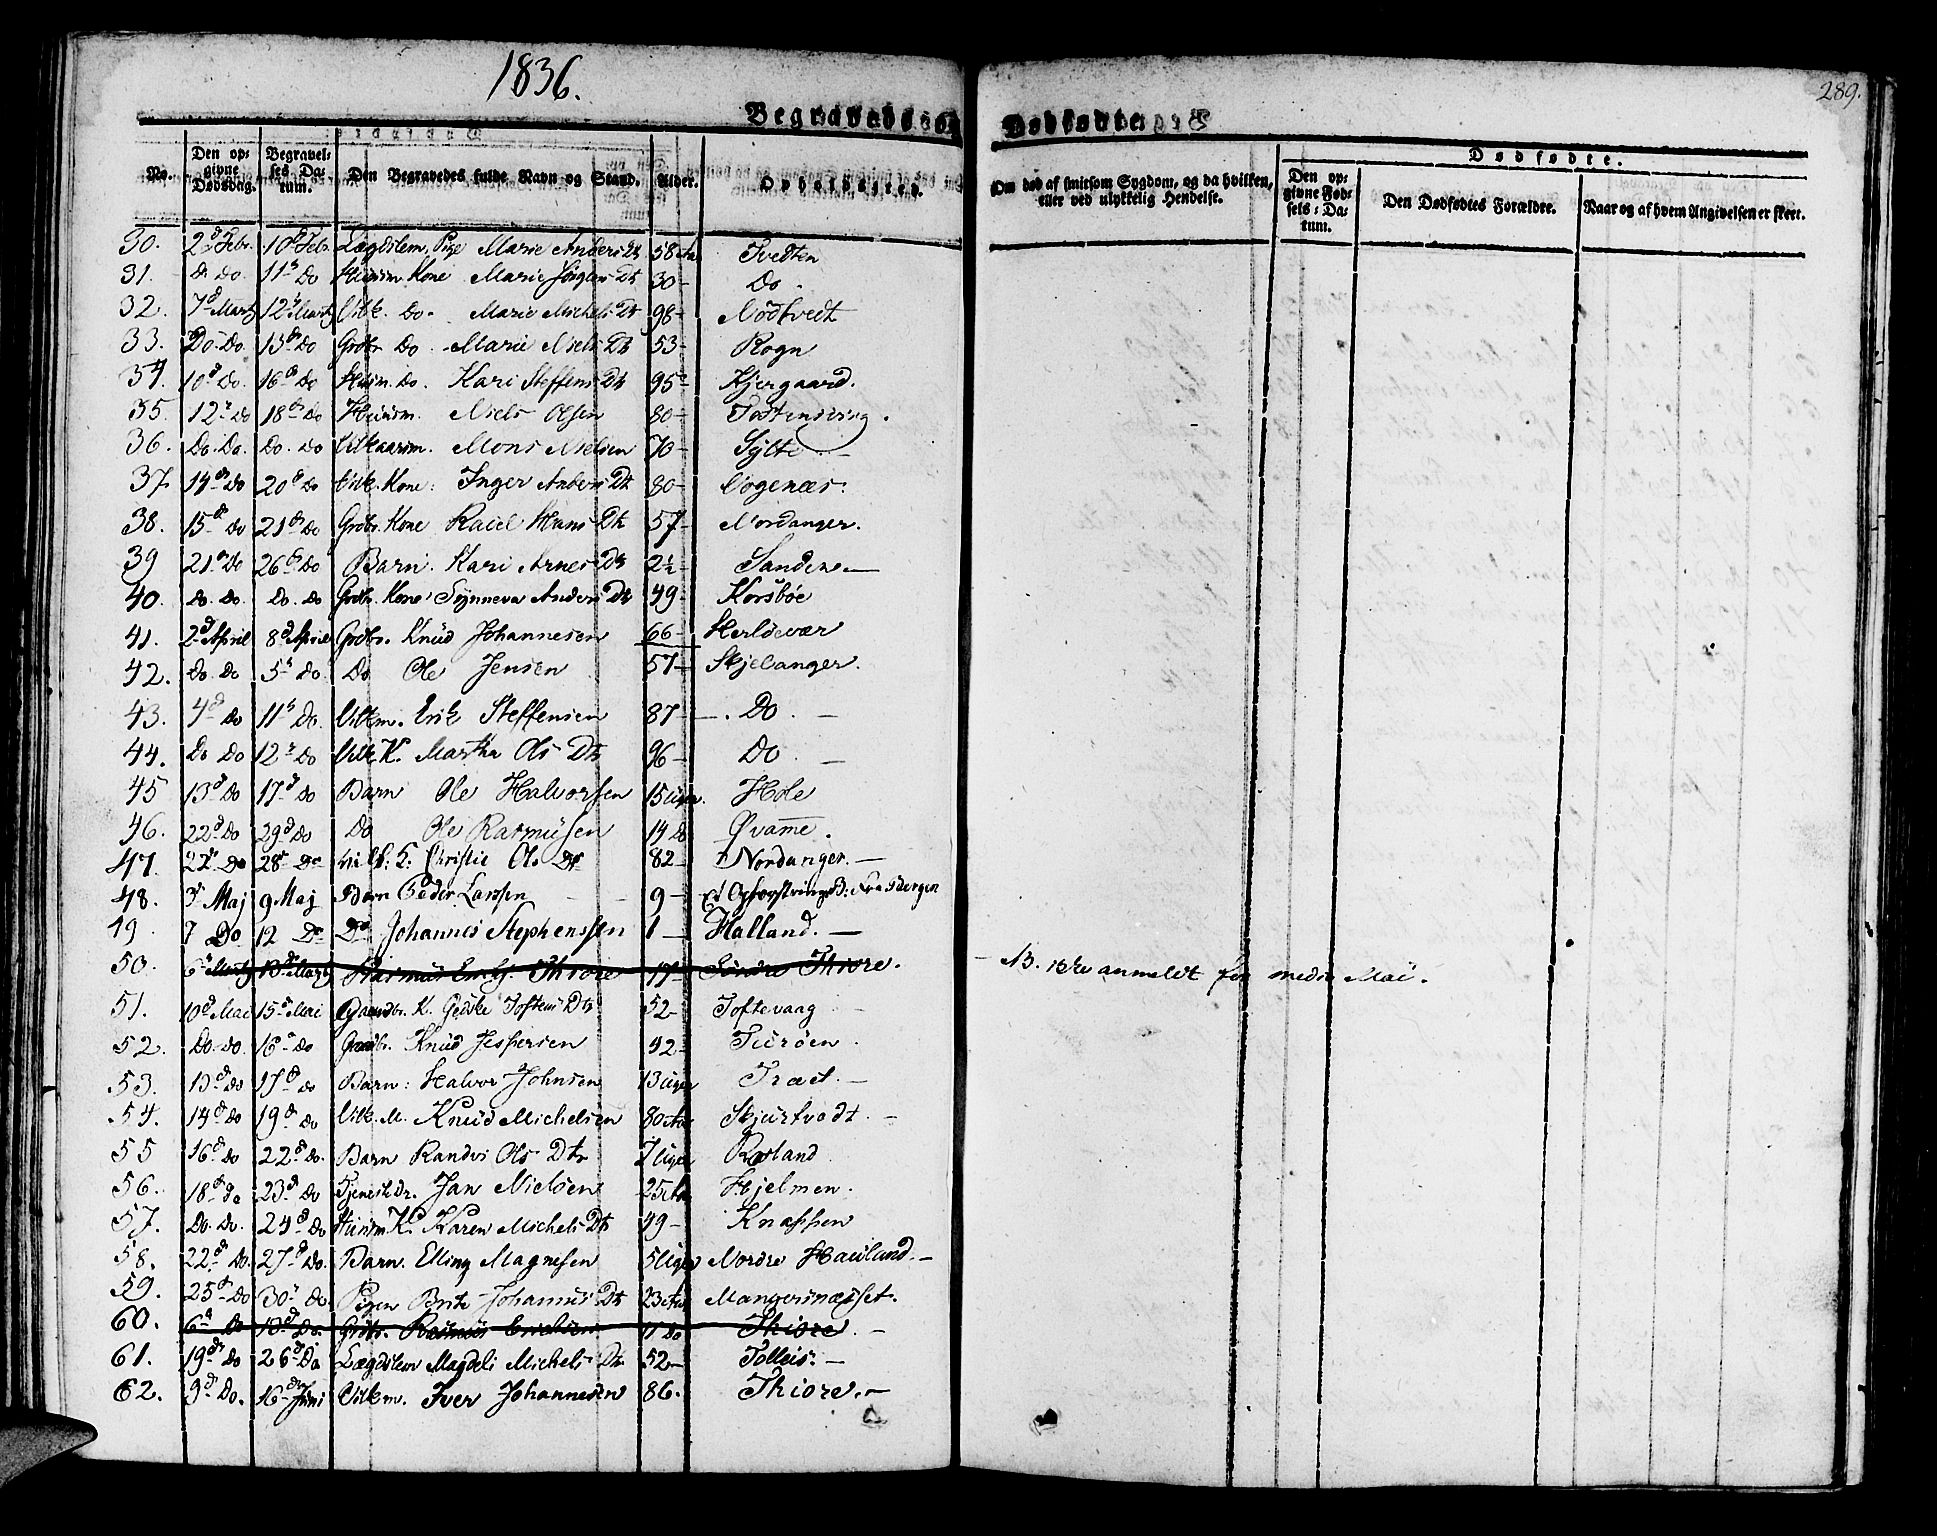 1836.
289.
Begravede og Dødfødte.
No. | Den opgivne Dødsdag. | Begravelses Datum. | Den Begravedes fulde Navn og Stand. | Alder. | Opholdssted. | Om død af smitsom Sygdom, og da hvilken, eller ved ulykkelig Hendelse. | Dødfødte. | Den opgivne Fødsels-Datum. | Den Dødfødtes Forældre. | Naar og af hvem Angivelsen er skeet.
30. 2d Febr. 10d Febr. Lægdslem, Pige Marie Anders Dt 58 Aar Tvedten
31. Do Do. 11t Do Huusm. Kone Marie Dt 30- Do.
32. 7d Martz 12t Martz Vilk. Do. Marie Michels Dt 98- Nødtvedt
33. Do. Do. 13d Do Grdbr Do. Marie Niels Dt 53- Rogn
34. 10d Do. 16d Do Huusm. Do. Kari Steffens Dt 95- Kjergaard.
35. 12t Do 18d Do Huusm. Niels Olsen 80-
36. Do. Do. Do. Do Vilkaarsm. Mons Nielsen 70- Sylte.
37. 14d Do 20d Do Vilk. Kone: Inger Anders Dt 80- Vogenæs.
38. 15d Do 21d Do Grdbr. Kone Hans Dt 57- Nordanger.
39 21d Do 26d Do Barn. Kari Arnes Dt 2½- Sanden.—
40. Do. Do. Do. Do Grdbr. Kone Synneva Anders Dt 49- Korsbøe
41. 2d April 8d April Grdbr. Knüd Johannesen 66- Herløevær
42. Do. Do 5t Do. Do Ole Jensen 57- Skjelanger.
43. 4d Do 11t Do. Vilkm. Erik Steffensen 87- . Do. —
44. Do Do 12t Do Vilk. K. Martha Ols Dt 96- Do. —
45 13d Do 17d Do Barn Ole Halvorsen 15 Uger. Hole
46. 22d Do 29d Do Do Ole Rasmüsen 14 Do Qvame.
47. 22t Do 28t Do Vilk. K. Christie Ols Dt 82- Nordanger.—
48. 3t Maj 9 Maj Barn Peder Larssen 9- Et Opfostrings B: fra Bergen
49. 7 Do 12 Do Do Johannes Stephenssen 1— Halland.—
50. 6t Martz 13d Martz Rasmüs Thiore 17- Søndre Thiore. - NB. ikke anmeldt før medio Mai.
51. 10d Mai 15d Mai Gaardbr. K. Dt 52- Toftevaag
52. Do. Do. 16d Do Gaardbr. Knüd Jespersen 42- Türøen.
53. 13d Do 17d Do Barn: Halvor Johnsen 13 Uger Træet.—
54. 14d Do 19d Do. Vilk. M. Knüd Michelsen 80 Aar Skjürtvedt. -
55 16d Do 22d Do. Barn Randvi Ols Dt 7 Uger Røland
56. 18d Do 23d Do Tjenestkdr. Jan Nielsen 25 Aar Hjelmen.
57. Do. Do. 24d Do Huusm K. Karen Michels Dt 49- Knappen
58. 22d Do. 27d Do. Barn. Elling Magnesen 5 Uger Nordre Haüland.—
59. 25d Do 30t Do. Pigen Brite Johannes Dt 23 Aar Mangersnæsset.
60. 6d Do 13d Do Grdbr. Rasmüs Ericksen 17 Do Thiore. -
61. 19d Do 26d Do Lægdslem Magdeli Michels Dt 52- Tolleis: —
62. 9d Do. 16 Juni Vilkm. Iver Johannesen 86. Thiore.—